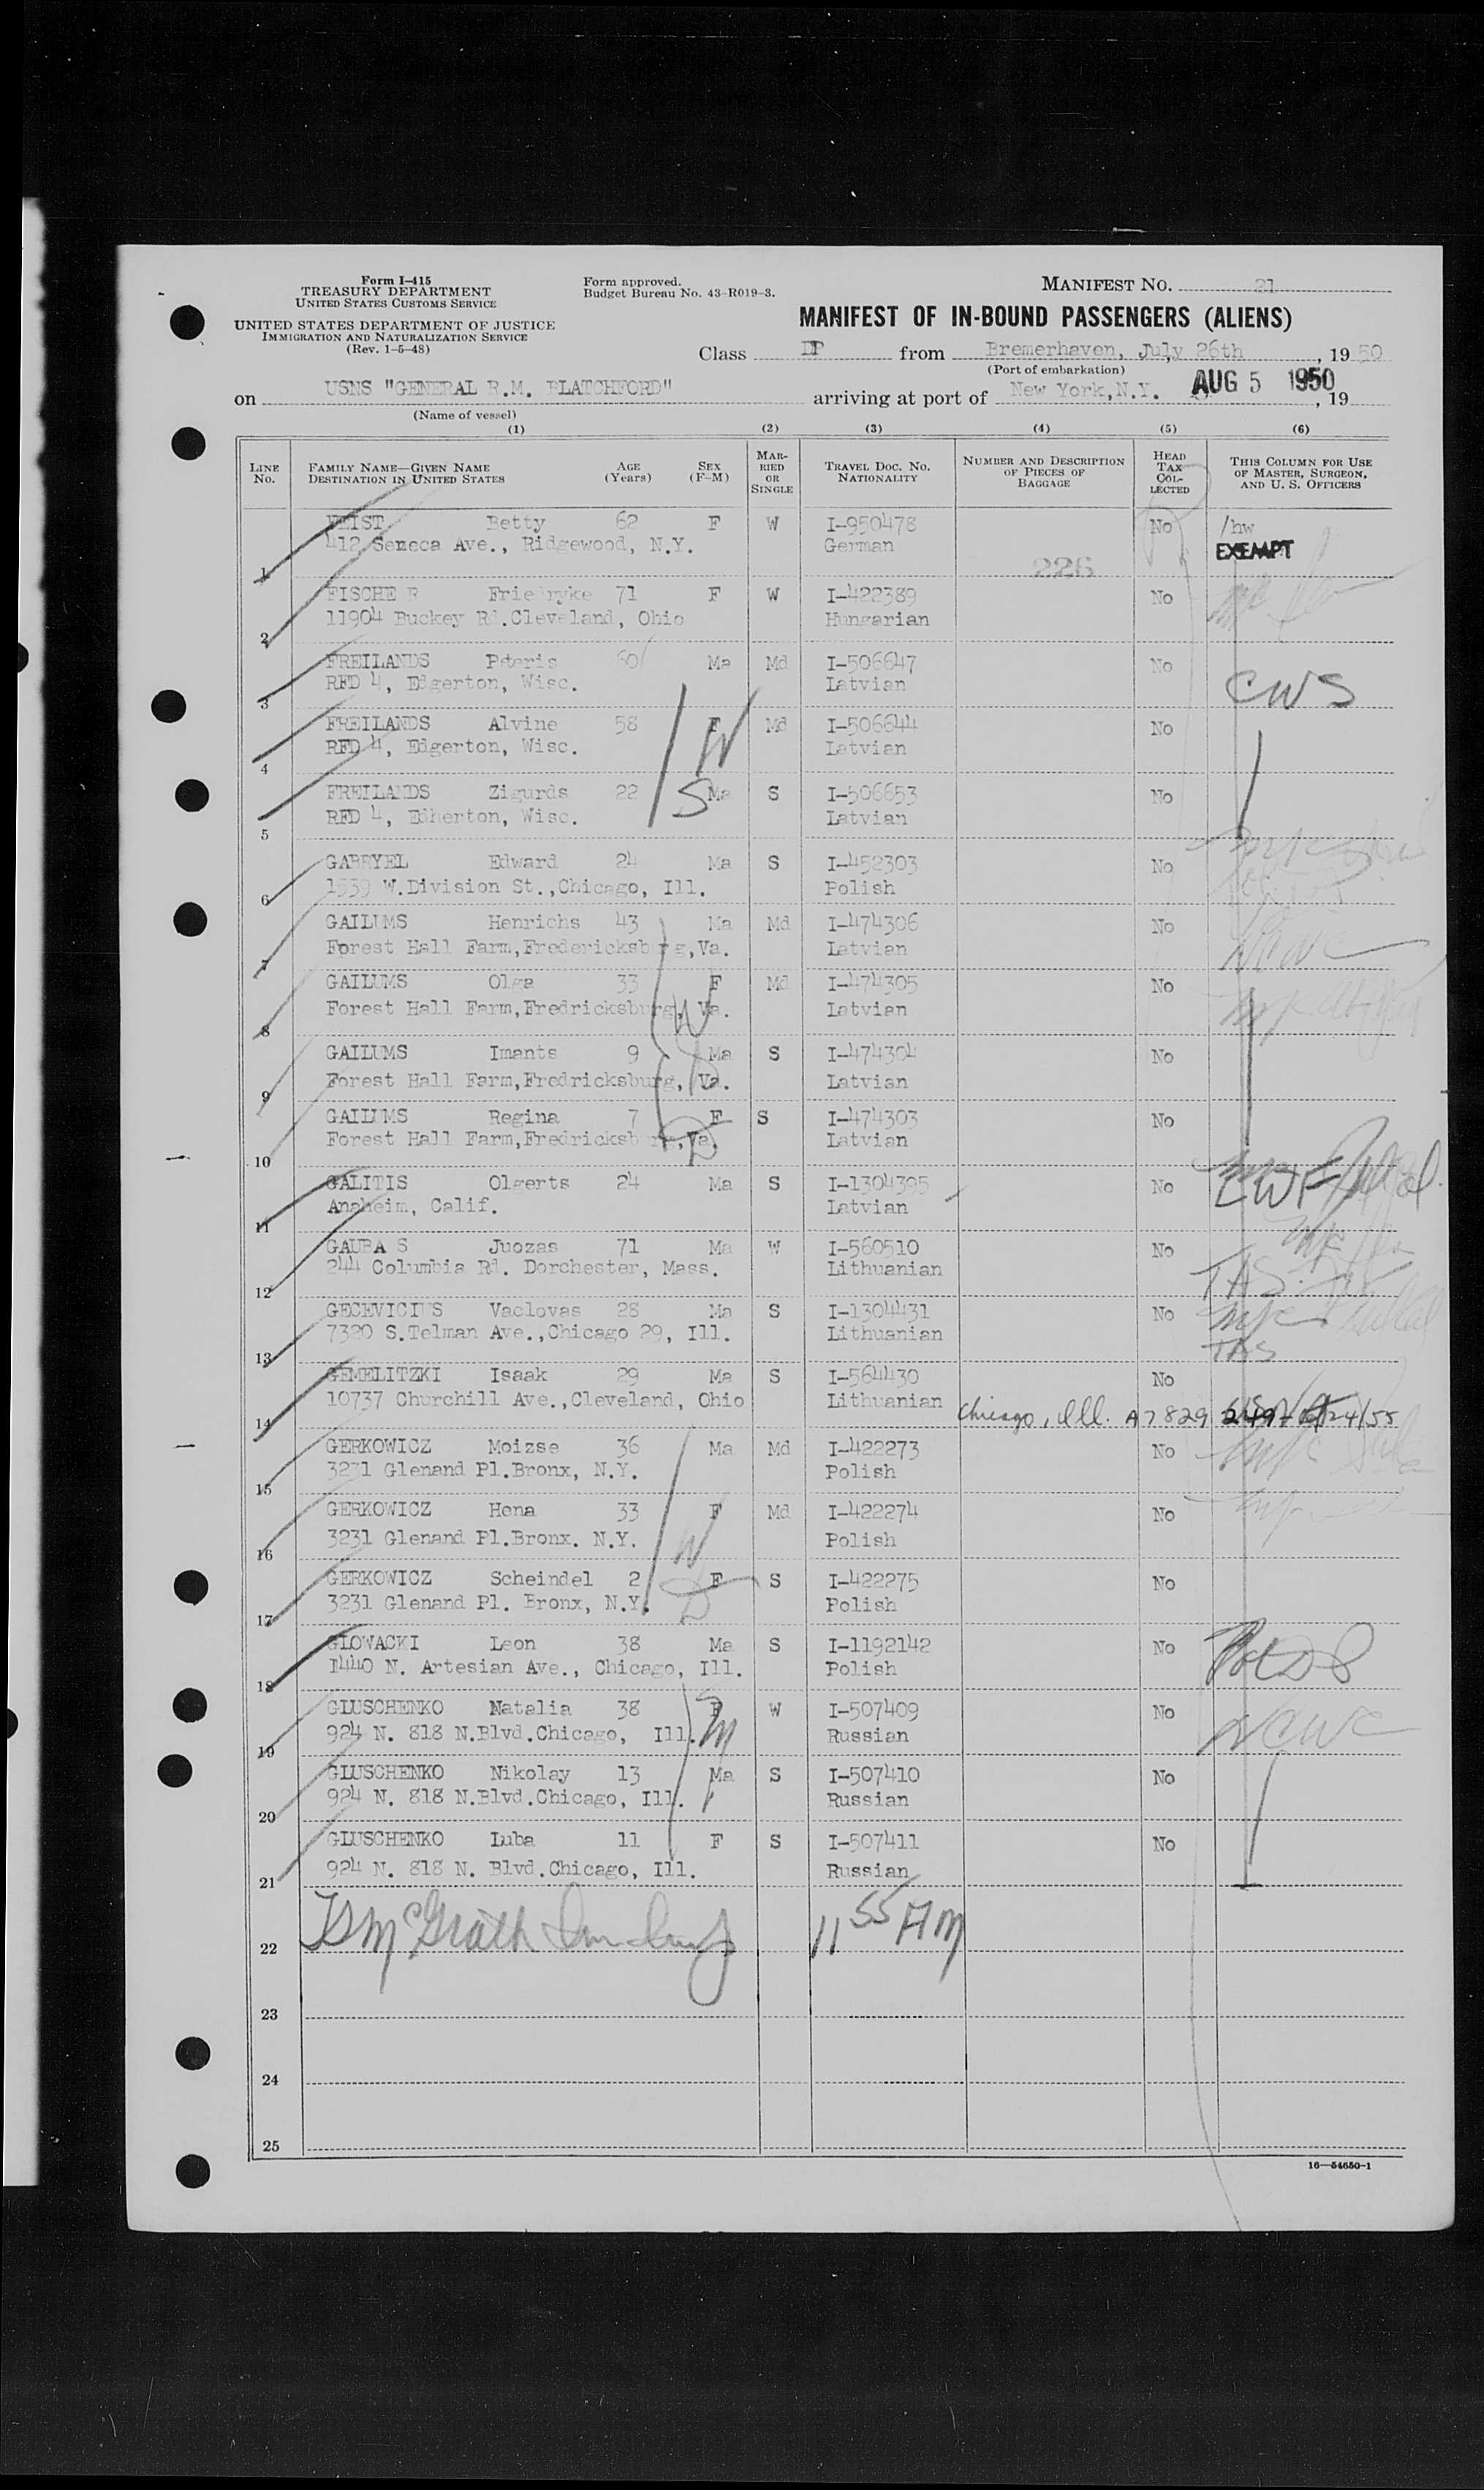 Form I-415
TREASURY DEPARTMENT
UNITED STATES CUSTOMS SERVICE
UNITED STATES DEPARTMENT OF JUSTICE
IMMIGRATION AND NATURALIZATION SERVICE
(Rev. 1-5-48)
Form approved.
Budget Bureau No. 43-R019-3.
MANIFEST NO. 21
MANIFEST OF IN-BOUND PASSENGERS (ALIENS)
Class DP from Bremerhaven, July 26th, 1950
(Port of embarkation)
on USNS "GENERAL R.M. BLATCHFORD" arriving at port of New York,N.Y. AUG 5 1950, 19
(Name of vessel)
(1) (2) (3) (4) (5) (6)
LINE NO. FAMILY NAME—GIVEN NAME DESTINATION IN UNITED STATES AGE (Years) SEX (F-M) MARRIED OR SINGLE TRAVEL DOC. NO. NATIONALITY NUMBER AND DESCRIPTION OF PIECES OF BAGGAGE HEAD TAX COLLECTED THIS COLUMN FOR USE OF MASTER, SURGEON, AND U. S. OFFICERS
Betty 62 F W I-950478 No /hw
1 412 Seneca Ave., Ridgewood, N.Y. German EXEMPT
226
FISCHE R Friedryke 71 F W I-422389 No
2 11904 Buckey Rd.Cleveland, Ohio Hungarian
FREILANDS Peteris 60 Ma Md I-506647 No
3 RFD 4, Edgerton, Wisc. Latvian CWS
FREILANDS Alvine 58 F Md I-506644 No
4 RFD 4, Edgerton, Wisc. Latvian W
FREILANDS Zigurds 22 Ma S I-506653 No
5 RFD 4, Edherton, Wisc. Latvian S
GABRYEL Edward 24 Ma S I-452303 No
6 1539 W.Division St.,Chicago, Ill. Polish
GAILUMS Henrichs 43 Ma Md I-474306 No
7 Forest Hall Farm,Fredericksburg,Va. Latvian NCWC
GAILUMS Olga 33 F Md I-474305 No
8 Forest Hall Farm,Fredricksburg, Va. Latvian W
GAILUMS Imants 9 Ma S I-474304 No
9 Forest Hall Farm,Fredricksburg, Va. Latvian
GAILUMS Regina 7 F S I-474303 No
10 Forest Hall Farm,Fredricksburg,Va. Latvian D
GALITIS Olgerts 24 Ma S I-1304395 No
11 Anaheim, Calif. Latvian
GAUBA S Juozas 71 Ma W I-560510 No
12 244 Columbia Rd. Dorchester, Mass. Lithuanian TAS
GECEVICIUS Vaclovas 28 Ma S I-1304431 No
13 7320 S.Telman Ave.,Chicago 29, Ill. Lithuanian TAS
GEMELITZKI Isaak 29 Ma S I-564430 No
14 10737 Churchill Ave.,Cleveland, Ohio Lithuanian Chicago, Ill. A7 829 249
GERKOWICZ Moizse 36 Ma Md I-422273 No
15 3231 Glenand Pl.Bronx, N.Y. Polish
GERKOWICZ Hena 33 F Md I-422274 No
16 3231 Glenand Pl.Bronx. N.Y. Polish W
GERKOWICZ Scheindel 2 F S I-422275 No
17 3231 Glenand Pl. Bronx, N.Y. Polish D
GLOWACKI Leon 38 Ma S I-1192142 No
18 1440 N. Artesian Ave., Chicago, Ill. Polish
GLUSCHENKO Natalia 38 F W I-507409 No
19 924 N. 818 N.Blvd.Chicago, Ill. Russian M NCWC
GLUSCHENKO Nikolay 13 Ma S I-507410 No
20 924 N. 818 N.Blvd.Chicago, Ill. Russian
GLUSCHENKO Luba 11 F S I-507411 No
21 924 N. 818 N. Blvd.Chicago, Ill. Russian
22 McGrath 11 55 AM
23
24
25
16—54650-1